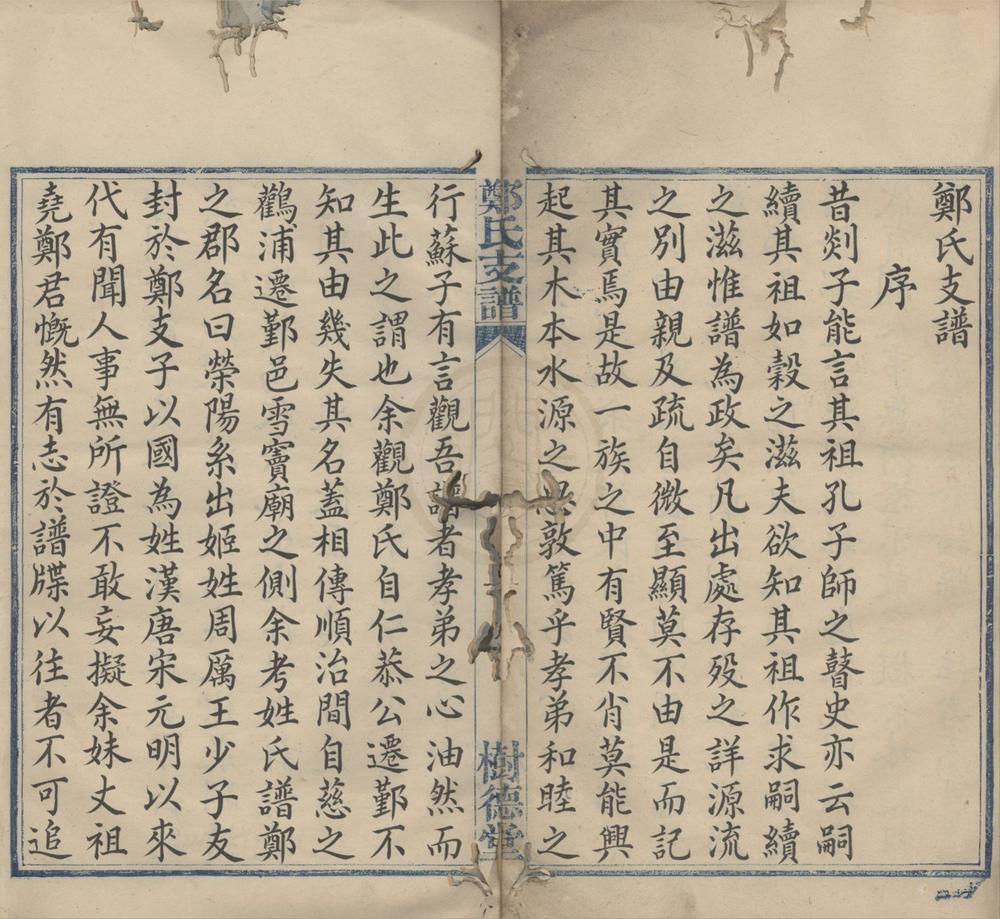 鄭氏支譜
序
昔剡子能言其祖孔子師之瞽史亦云嗣
續其祖如穀之滋夫欲知其祖作求嗣續
之滋惟譜為政矣凡出處存歿之詳源流
之別由親及疏自微至顯莫不由是而記
其實焉是故一族之中有賢不肖莫能興
起其木本水源之思敦篤乎孝弟和睦之
鄭氏支譜
樹德堂
行蘇子有言觀吾譜者孝弟之心油然而
生此之謂也余觀鄭氏自仁恭公遷鄞不
知其由幾失其名蓋相傳順治間自慈之
鸛浦遷鄞邑雪竇廟之側余考姓氏譜鄭
之郡名曰榮陽系出姬姓周厲王少子友
封於鄭支子以國為姓漢唐宋元明以來
代有聞人事無所證不敢妄擬余妹丈祖
堯鄭君慨然有志於譜牒以往者不可追